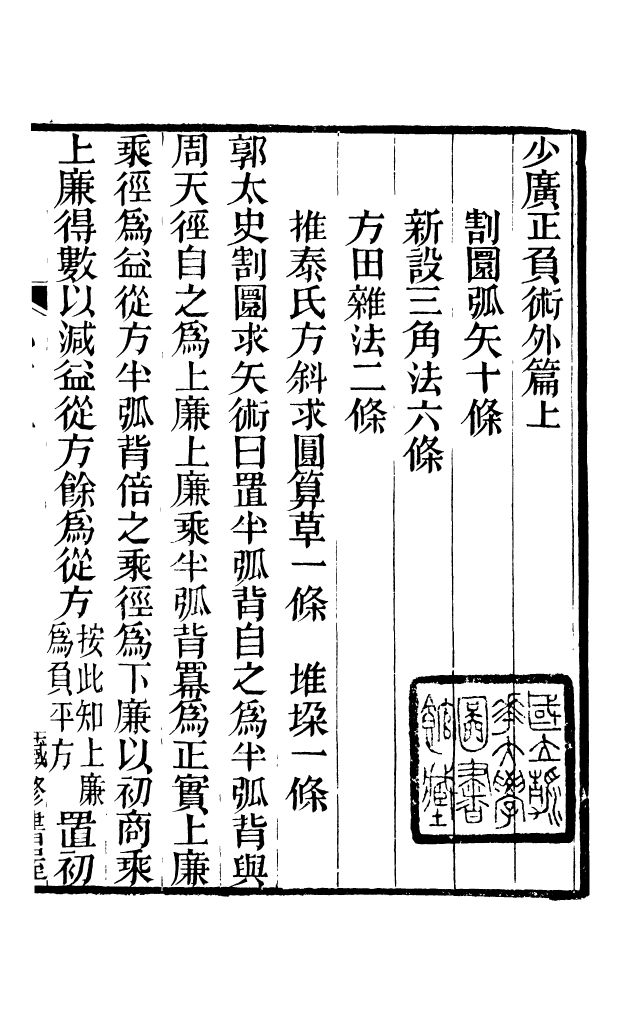 少廣正負術外篇上
割圜弧矢十條
新設三角法六條
方田雜法二條
推泰氏方斜求圓算草一條　堆垜一條
郭太史割圜求矢術曰置半弧背自之為半弧背與
周天徑自之為上廉上廉乘半弧背羃為正實上廉
乘徑為益從方半弧背倍之乘徑為下廉以初商乘
上廉得數以減益從方餘為從方按此知上廉為負平方置初
藏修書屋
國立清華大學圖書館藏